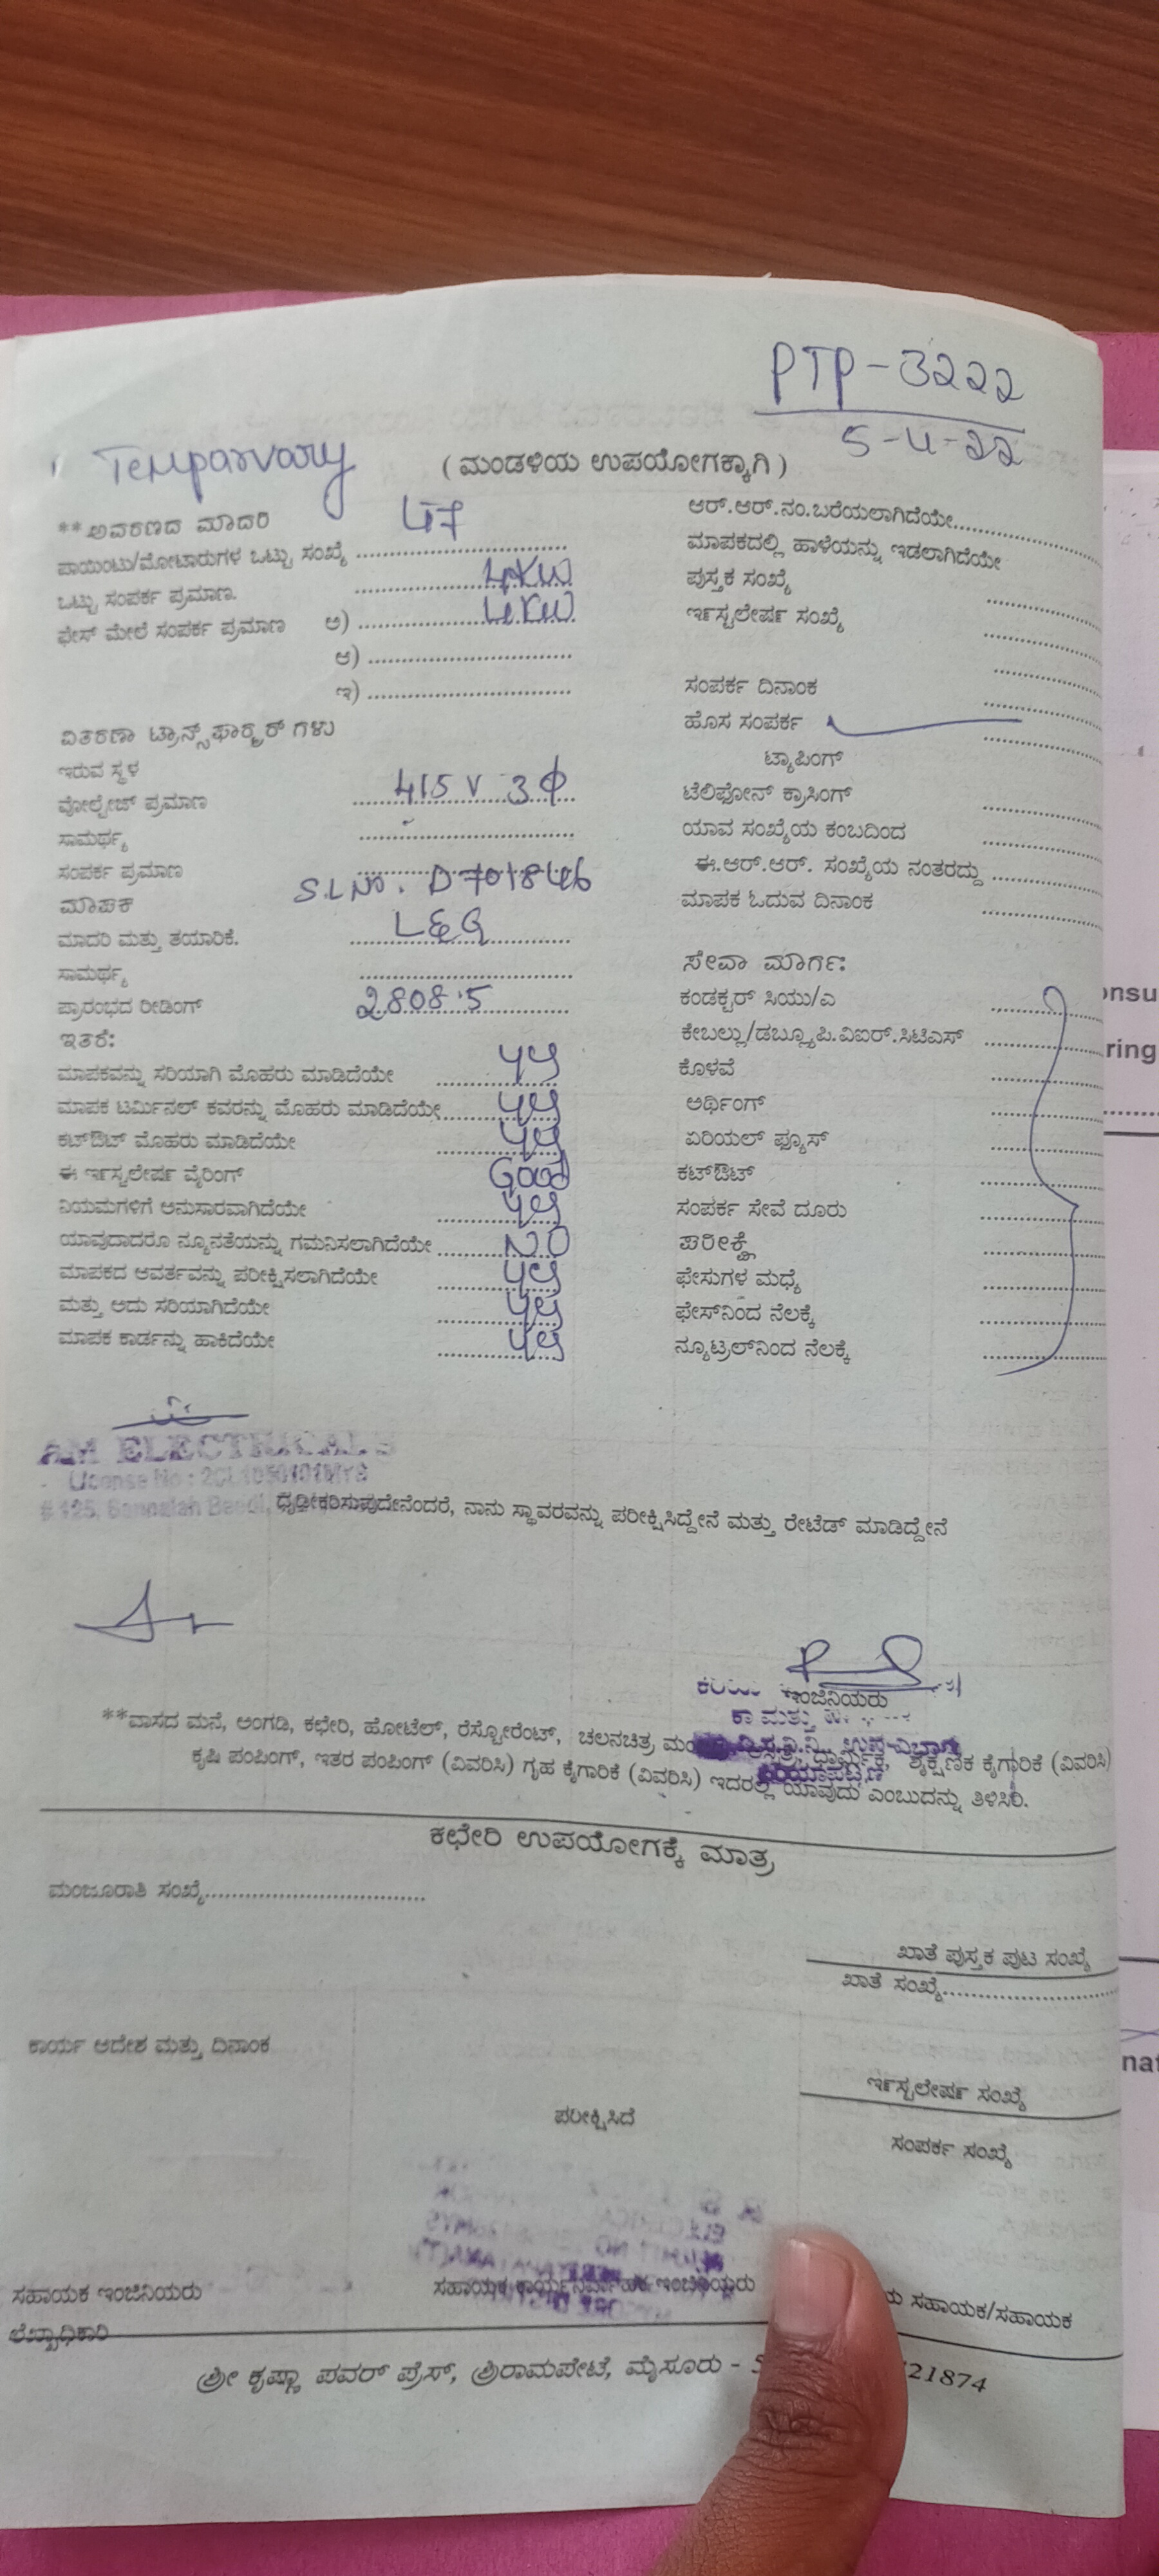 PTP-3222
5-4-22
Temparvary
( ಮಂಡಳಿಯ ಉಪಯೋಗಕ್ಕಾಗಿ )
**ಆವರಣದ ಮಾದರಿ
47
ಪಾಯಿಂಟು/ಮೋಟಾರುಗಳ ಒಟ್ಟು ಸಂಖ್ಯೆ
ಒಟ್ಟು ಸಂಪರ್ಕ ಪ್ರಮಾಣ. 4KW
ಫೇಸ್ ಮೇಲೆ ಸಂಪರ್ಕ ಪ್ರಮಾಣ ಅ) 4KW
ಆ)
ಇ)
ವಿತರಣಾ ಟ್ರಾನ್ಸ್‌ಫಾರ್ಮರ್‌ಗಳು
ಇರುವ ಸ್ಥಳ
ವೋಲ್ಟೇಜ್ ಪ್ರಮಾಣ 415 V 3 Φ
ಸಾಮರ್ಥ್ಯ
ಸಂಪರ್ಕ ಪ್ರಮಾಣ
ಮಾಪಕ S.L No. D701846
ಮಾದರಿ ಮತ್ತು ತಯಾರಿಕೆ. L&G
ಸಾಮರ್ಥ್ಯ
ಪ್ರಾರಂಭದ ರೀಡಿಂಗ್ 2808.5
ಇತರೆ:
ಮಾಪಕವನ್ನು ಸರಿಯಾಗಿ ಮೊಹರು ಮಾಡಿದೆಯೇ
ಮಾಪಕ ಟರ್ಮಿನಲ್ ಕವರನ್ನು ಮೊಹರು ಮಾಡಿದೆಯೇ
ಕಟ್‌ಔಟ್ ಮೊಹರು ಮಾಡಿದೆಯೇ
ಈ ಇನ್‌ಸ್ಟಲೇಷನ್ ವೈರಿಂಗ್ Good
ನಿಯಮಗಳಿಗೆ ಅನುಸಾರವಾಗಿದೆಯೇ
ಯಾವುದಾದರೂ ನ್ಯೂನತೆಯನ್ನು ಗಮನಿಸಲಾಗಿದೆಯೇ NO
ಮಾಪಕದ ಆವರ್ತವನ್ನು ಪರೀಕ್ಷಿಸಲಾಗಿದೆಯೇ
ಮತ್ತು ಅದು ಸರಿಯಾಗಿದೆಯೇ
ಮಾಪಕ ಕಾರ್ಡನ್ನು ಹಾಕಿದೆಯೇ
ಆರ್.ಆರ್.ನಂ.ಬರೆಯಲಾಗಿದೆಯೇ
ಮಾಪಕದಲ್ಲಿ ಹಾಳೆಯನ್ನು ಇಡಲಾಗಿದೆಯೇ
ಪುಸ್ತಕ ಸಂಖ್ಯೆ
ಇನ್‌ಸ್ಟಲೇಷನ್ ಸಂಖ್ಯೆ
ಸಂಪರ್ಕ ದಿನಾಂಕ
ಹೊಸ ಸಂಪರ್ಕ
ಟ್ಯಾಪಿಂಗ್
ಟೆಲಿಫೋನ್ ಕ್ರಾಸಿಂಗ್
ಯಾವ ಸಂಖ್ಯೆಯ ಕಂಬದಿಂದ
ಈ.ಆರ್.ಆರ್. ಸಂಖ್ಯೆಯ ನಂತರದ್ದು
ಮಾಪಕ ಓದುವ ದಿನಾಂಕ
ಸೇವಾ ಮಾರ್ಗ:
ಕಂಡಕ್ಟರ್ ಸಿಯು/ಎ
ಕೇಬಲ್ಲು/ಡಬ್ಲ್ಯೂಪಿ.ವಿಐರ್.ಸಿಟಿಎಸ್
ಕೊಳವೆ
ಅರ್ಥಿಂಗ್
ಏರಿಯಲ್ ಫ್ಯೂಸ್
ಕಟ್‌ಔಟ್
ಸಂಪರ್ಕ ಸೇವೆ ದೂರು
ಪರೀಕ್ಷೆ
ಫೇಸುಗಳ ಮಧ್ಯೆ
ಫೇಸ್‌ನಿಂದ ನೆಲಕ್ಕೆ
ನ್ಯೂಟ್ರಲ್‌ನಿಂದ ನೆಲಕ್ಕೆ
AM ELECTRICALS
License No : 2CL1050101MYS
# 125,
ಧೃಢೀಕರಿಸುವುದೇನೆಂದರೆ, ನಾನು ಸ್ಥಾವರವನ್ನು ಪರೀಕ್ಷಿಸಿದ್ದೇನೆ ಮತ್ತು ರೇಟೆಡ್ ಮಾಡಿದ್ದೇನೆ
ಇಂಜಿನಿಯರು
**ವಾಸದ ಮನೆ, ಅಂಗಡಿ, ಕಛೇರಿ, ಹೋಟೆಲ್, ರೆಸ್ಟೋರೆಂಟ್, ಚಲನಚಿತ್ರ ಧಾರ್ಮಿಕ, ಶೈಕ್ಷಣಿಕ ಕೈಗಾರಿಕೆ (ವಿವರಿಸಿ)
ಕೃಷಿ ಪಂಪಿಂಗ್, ಇತರ ಪಂಪಿಂಗ್ (ವಿವರಿಸಿ) ಗೃಹ ಕೈಗಾರಿಕೆ (ವಿವರಿಸಿ) ಇದರಲ್ಲಿ ಯಾವುದು ಎಂಬುದನ್ನು ತಿಳಿಸಿರಿ.
ಕಛೇರಿ ಉಪಯೋಗಕ್ಕೆ ಮಾತ್ರ
ಮಂಜೂರಾತಿ ಸಂಖ್ಯೆ
ಖಾತೆ ಪುಸ್ತಕ ಪುಟ ಸಂಖ್ಯೆ
ಖಾತೆ ಸಂಖ್ಯೆ
ಕಾರ್ಯ ಆದೇಶ ಮತ್ತು ದಿನಾಂಕ
ಇನ್‌ಸ್ಟಲೇಷನ್ ಸಂಖ್ಯೆ
ಪರೀಕ್ಷಿಸಿದೆ
ಸಂಪರ್ಕ ಸಂಖ್ಯೆ
ಸಹಾಯಕ ಇಂಜಿನಿಯರು
ಸಹಾಯಕ ಕಾರ್ಯನಿರ್ವಾಹಕ ಇಂಜಿನಿಯರು
ಸಹಾಯಕ/ಸಹಾಯಕ
ಲೆಖ್ಖಾಧಿಕಾರಿ
ಶ್ರೀ ಕೃಷ್ಣಾ ಪವರ್ ಪ್ರೆಸ್, ಶ್ರೀರಾಮಪೇಟೆ, ಮೈಸೂರು - 21874